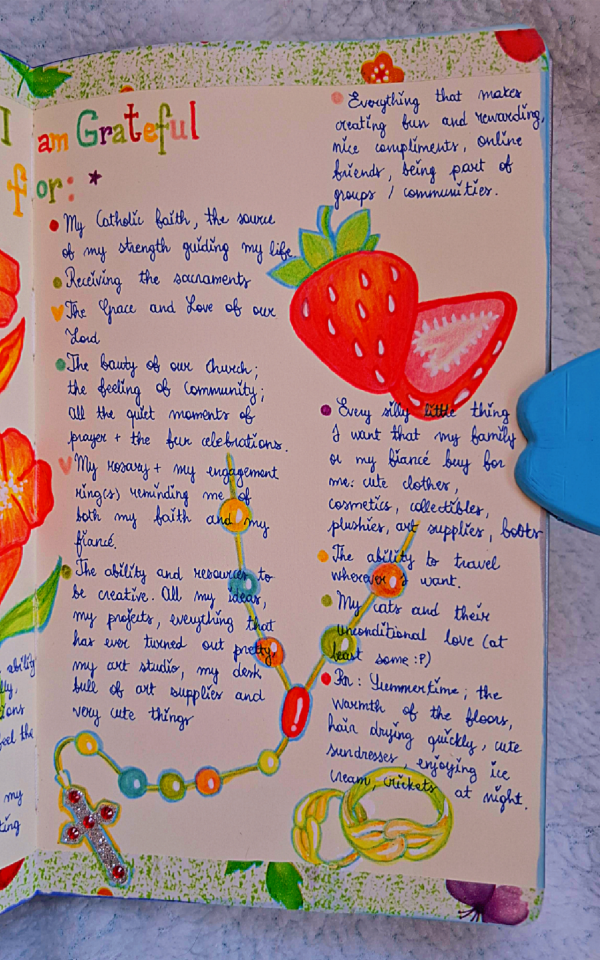 I am Grateful
for:
My Catholic faith, the source
of my strength guiding my life.
Receiving the sacraments
The Grace and Love of our
Lord
The bauty of our Church;
the feeling of Community;
All the quiet moments of
prayer + the fun celebrations.
My rosary + my engagement
ring(s) reminding me of
both my faith and my
fiancé.
The ability and resources to
be creative. All my ideas,
my projects, everything that
has ever turned out pretty,
my art studio, my desk
full of art supplies and
very cute things
Everything that makes
creating fun and rewarding,
nice compliments, online
friends, being part of
groups / communities.
Every silly little thing
I want that my family
or my fiancé buy for
me: cute clothes,
cosmetics, collectibles,
plushies, art supplies, books
The ability to travel
wherever I want.
My cats and their
unconditional love (at
least some :P)
Rn: Summertime; the
warmth of the floors,
hair drying quickly, cute
sundresses, enjoying ice
cream, crickets at night.
ability
feel the
my